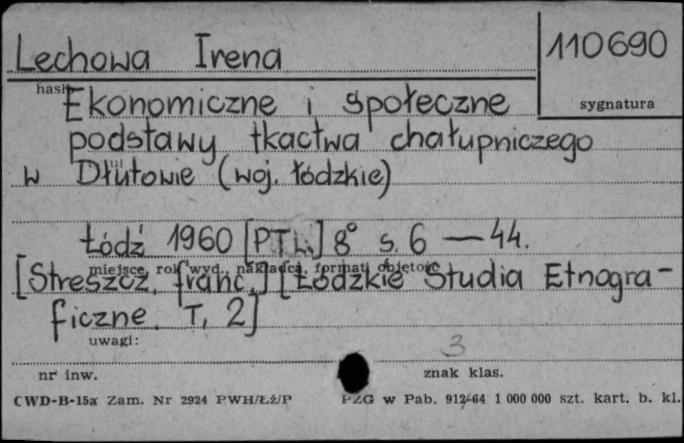 Lechowa Irena
110690
hasło
sygnatura
Ekonomiczne i społeczne
podstawy tkactwa chałupniczego
w Dłutowie (woj. łódzkie)
Łódź 1960 [PTL.] 8° s. 6 — 44.
miejsce, rok wyd., nakładca, format, objętość
[Streszcz. franc.] [Łódzkie Studia Etnogra-
ficzne. T. 2]
uwagi:
3
nr inw.
znak klas.
CWD-B-15a Zam. Nr 2924 PWH/Łź/P
PZG w Pab. 912-64 1 000 000 szt. kart. b. kl.